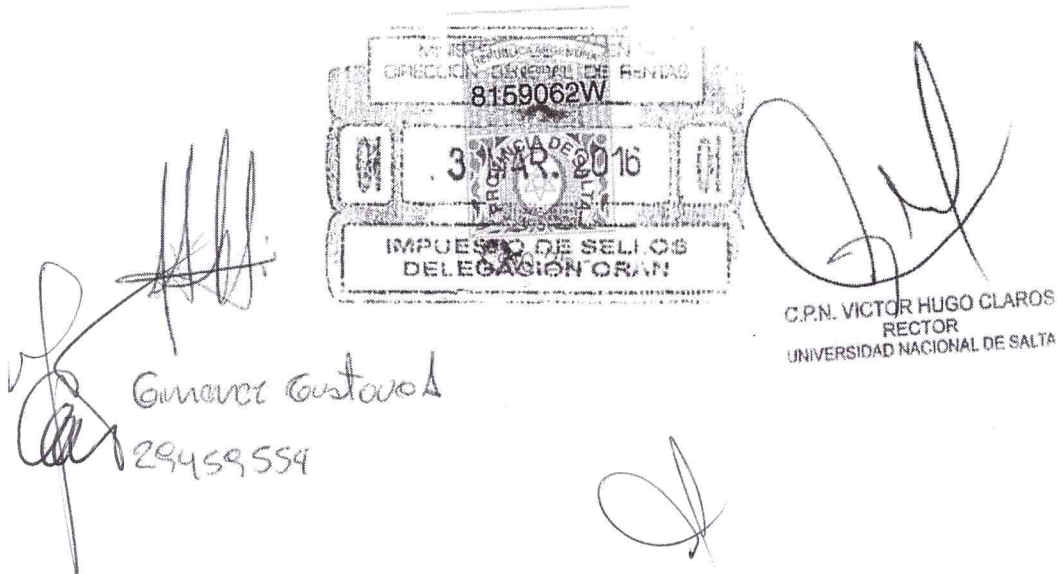 DIRECCION GENERAL DE RENTAS
8159062W
01 3 MAR. 2016 01
PROVINCIA DE SALTA
IMPUESTO DE SELLOS
DELEGACION ORAN
C.P.N. VICTOR HUGO CLAROS
RECTOR
UNIVERSIDAD NACIONAL DE SALTA
Gustavo A
29459554